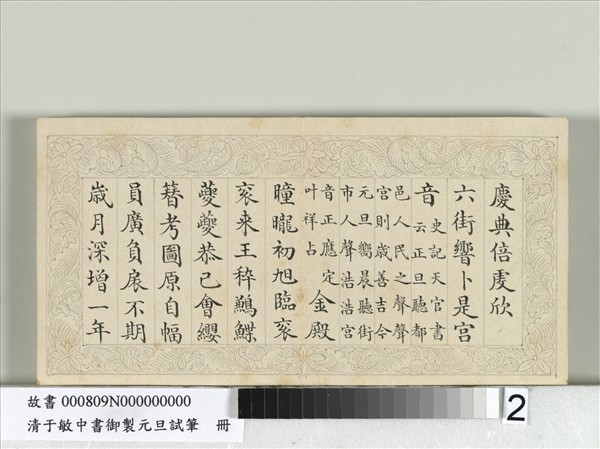 慶典倍虔欣
六街響卜是宮
音
史記天官書
云正旦聽都
邑人民之聲聲
宮則歲善吉今
元旦嚮晨聽街
市人聲浩浩宮
音正應定
叶祥占
金殿
曈曨初旭臨衮
衮来王稡鶼鰈
夔夔恭己會纓
簪考圖原自幅
員廣負扆不期
歲月深增一年
故書 000809N000000000
清于敏中書御製元旦試筆 冊
2